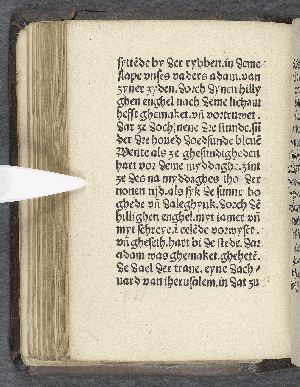 sittēde by der rybben. in deme
slape vnses vaders adam. van
zyner zyden. dorch dynen hilly
ghen enghel nach deme lichām
hefft ghemaket. vñ vortruwet.
dar ze doch nene de sunde. sū
der de houed doedsunde bleuē
Wente als ze ghesundigheden
hart vor deme myddaghe. zint
ze des na myddaghes tho der
nonen tijd. als sik de sunne bo
ghede vñ daleghynk. dorch dē
hillighen enghel. myt iamer vñ
myt schreye. ī eelēde vorwyset.
vñ gheseth. hart bi de stede. dar
adam was ghemaket. ghehetē.
de dael der trane. eyne dach
vard van iherusalem. in dat zu